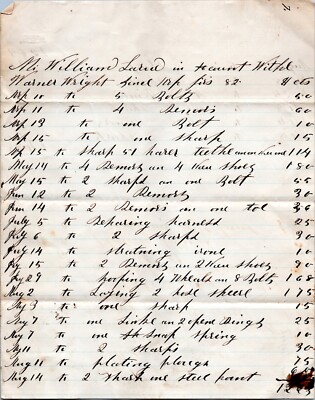 Mr William Laird in account With
Warner Wright sinc Apr firs 82 $ cts
Apr 10 to 5 Bolts 50
Apr 11 to 4 Remors 60
Apr 12 to one Bolt 10
Apr 15 to one sharp 15
Apr 15 to sharp 51 harer teethe 1 14
May 14 to 4 Remors an 4 new shoes 1 80
May 15 to 2 sharps an one Bolt 55
Jun 12 to 2 Remors 30
Jun 14 to 2 Remors an one toe 30
July 5 to Repairing harness 25
July 6 to 2 sharps 30
July 14 to stratning irone 10
July 15 to 2 Remors an 2 new shoes 90
July 29 to 4 Wheals an 8 Bolts 1 68
Aug 2 to 2 hose 1 75
Ag 3 to one sharp 15
Aug 7 to one Linke an 2 open Rings 25
Aug 7 to one Snap Spring 10
Ag 11 to 2 sharps 30
Aug 11 to plating plough 75
Aug 14 to 2 sharp one steel point